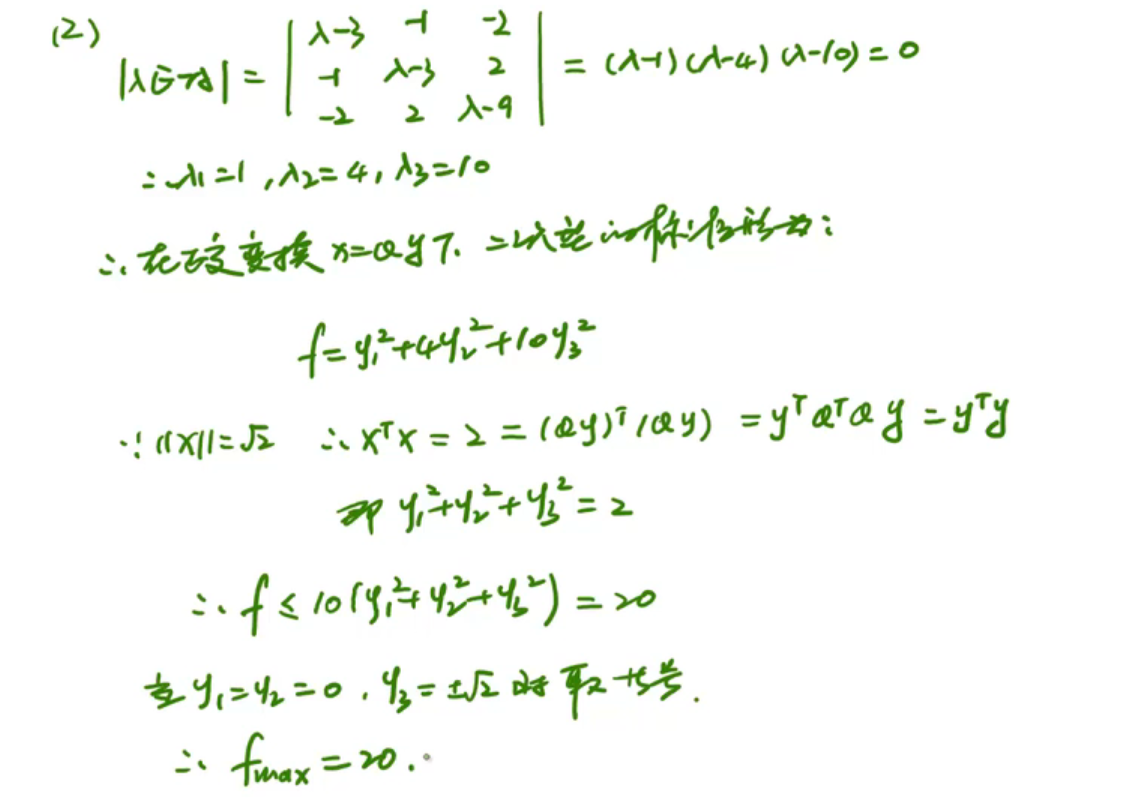 (2)
|λE-A| = | λ-3 -1 -2 |
| -1 λ-3 2 | = (λ-1)(λ-4)(λ-10)=0
| -2 2 λ-9 |
∴ λ₁=1, λ₂=4, λ₃=10
∴ 在正交变换 x=Qy下. 二次型的标准形为:
f=y₁²+4y₂²+10y₃²
∵ ||x||=√2 ∴ xᵀx = 2 = (Qy)ᵀ(Qy) = yᵀQᵀQy = yᵀy
即 y₁²+y₂²+y₃²=2
∴ f ≤ 10(y₁²+y₂²+y₃²) = 20
当 y₁=y₂=0, y₃=±√2 时取等号.
∴ fmax=20.